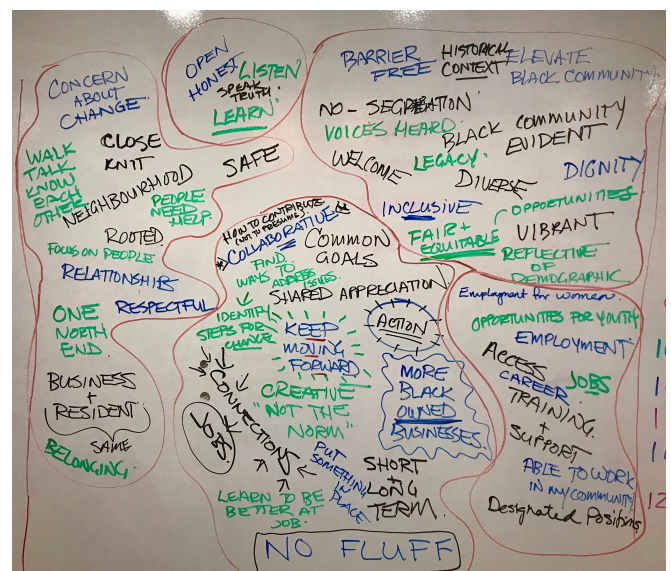 CONCERN
ABOUT
CHANGE.
WALK
TALK
KNOW
EACH
OTHER
CLOSE
KNIT
NEIGHBOURHOOD
SAFE
PEOPLE
NEED
HELP.
ROOTED
FOCUS ON PEOPLE
RELATIONSHIPS
RESPECTFUL
ONE
NORTH
END.
BUSINESS
+
RESIDENT
SAME
BELONGING.
OPEN
HONEST
LISTEN
SPEAK
TRUTH.
LEARN
BARRIER
FREE
HISTORICAL
CONTEXT
ELEVATE
BLACK COMMUNITY
NO-SEGREGATION
VOICES HEARD.
BLACK COMMUNITY
EVIDENT
WELCOME
LEGACY.
DIVERSE
DIGNITY
INCLUSIVE
OPPORTUNITIES
FAIR +
EQUITABLE
VIBRANT
REFLECTIVE
OF
DEMOGRAPHIC
HOW TO CONTRIBUTE
(NOT TO PRESUME)
COLLABORATIVE
COMMON
GOALS
FIND
WAYS TO
ADDRESS
ISSUES.
SHARED APPRECIATION
IDENTIFY
STEPS FOR
CHANGE
KEEP
MOVING
FORWARD
ACTION
CREATIVE
"NOT THE
NORM"
MORE
BLACK
OWNED
BUSINESSES.
CONNECTIONS
JOBS
PUT
SOMETHING
IN PLACE
LEARN TO BE
BETTER AT
JOB.
SHORT
+
LONG
TERM.
NO FLUFF
Employment for women.
OPPORTUNITIES FOR YOUTH
EMPLOYMENT
ACCESS
CAREER.
JOBS
TRAINING.
+
SUPPORT
ABLE TO WORK
IN MY COMMUNITY
Designated Positions
12